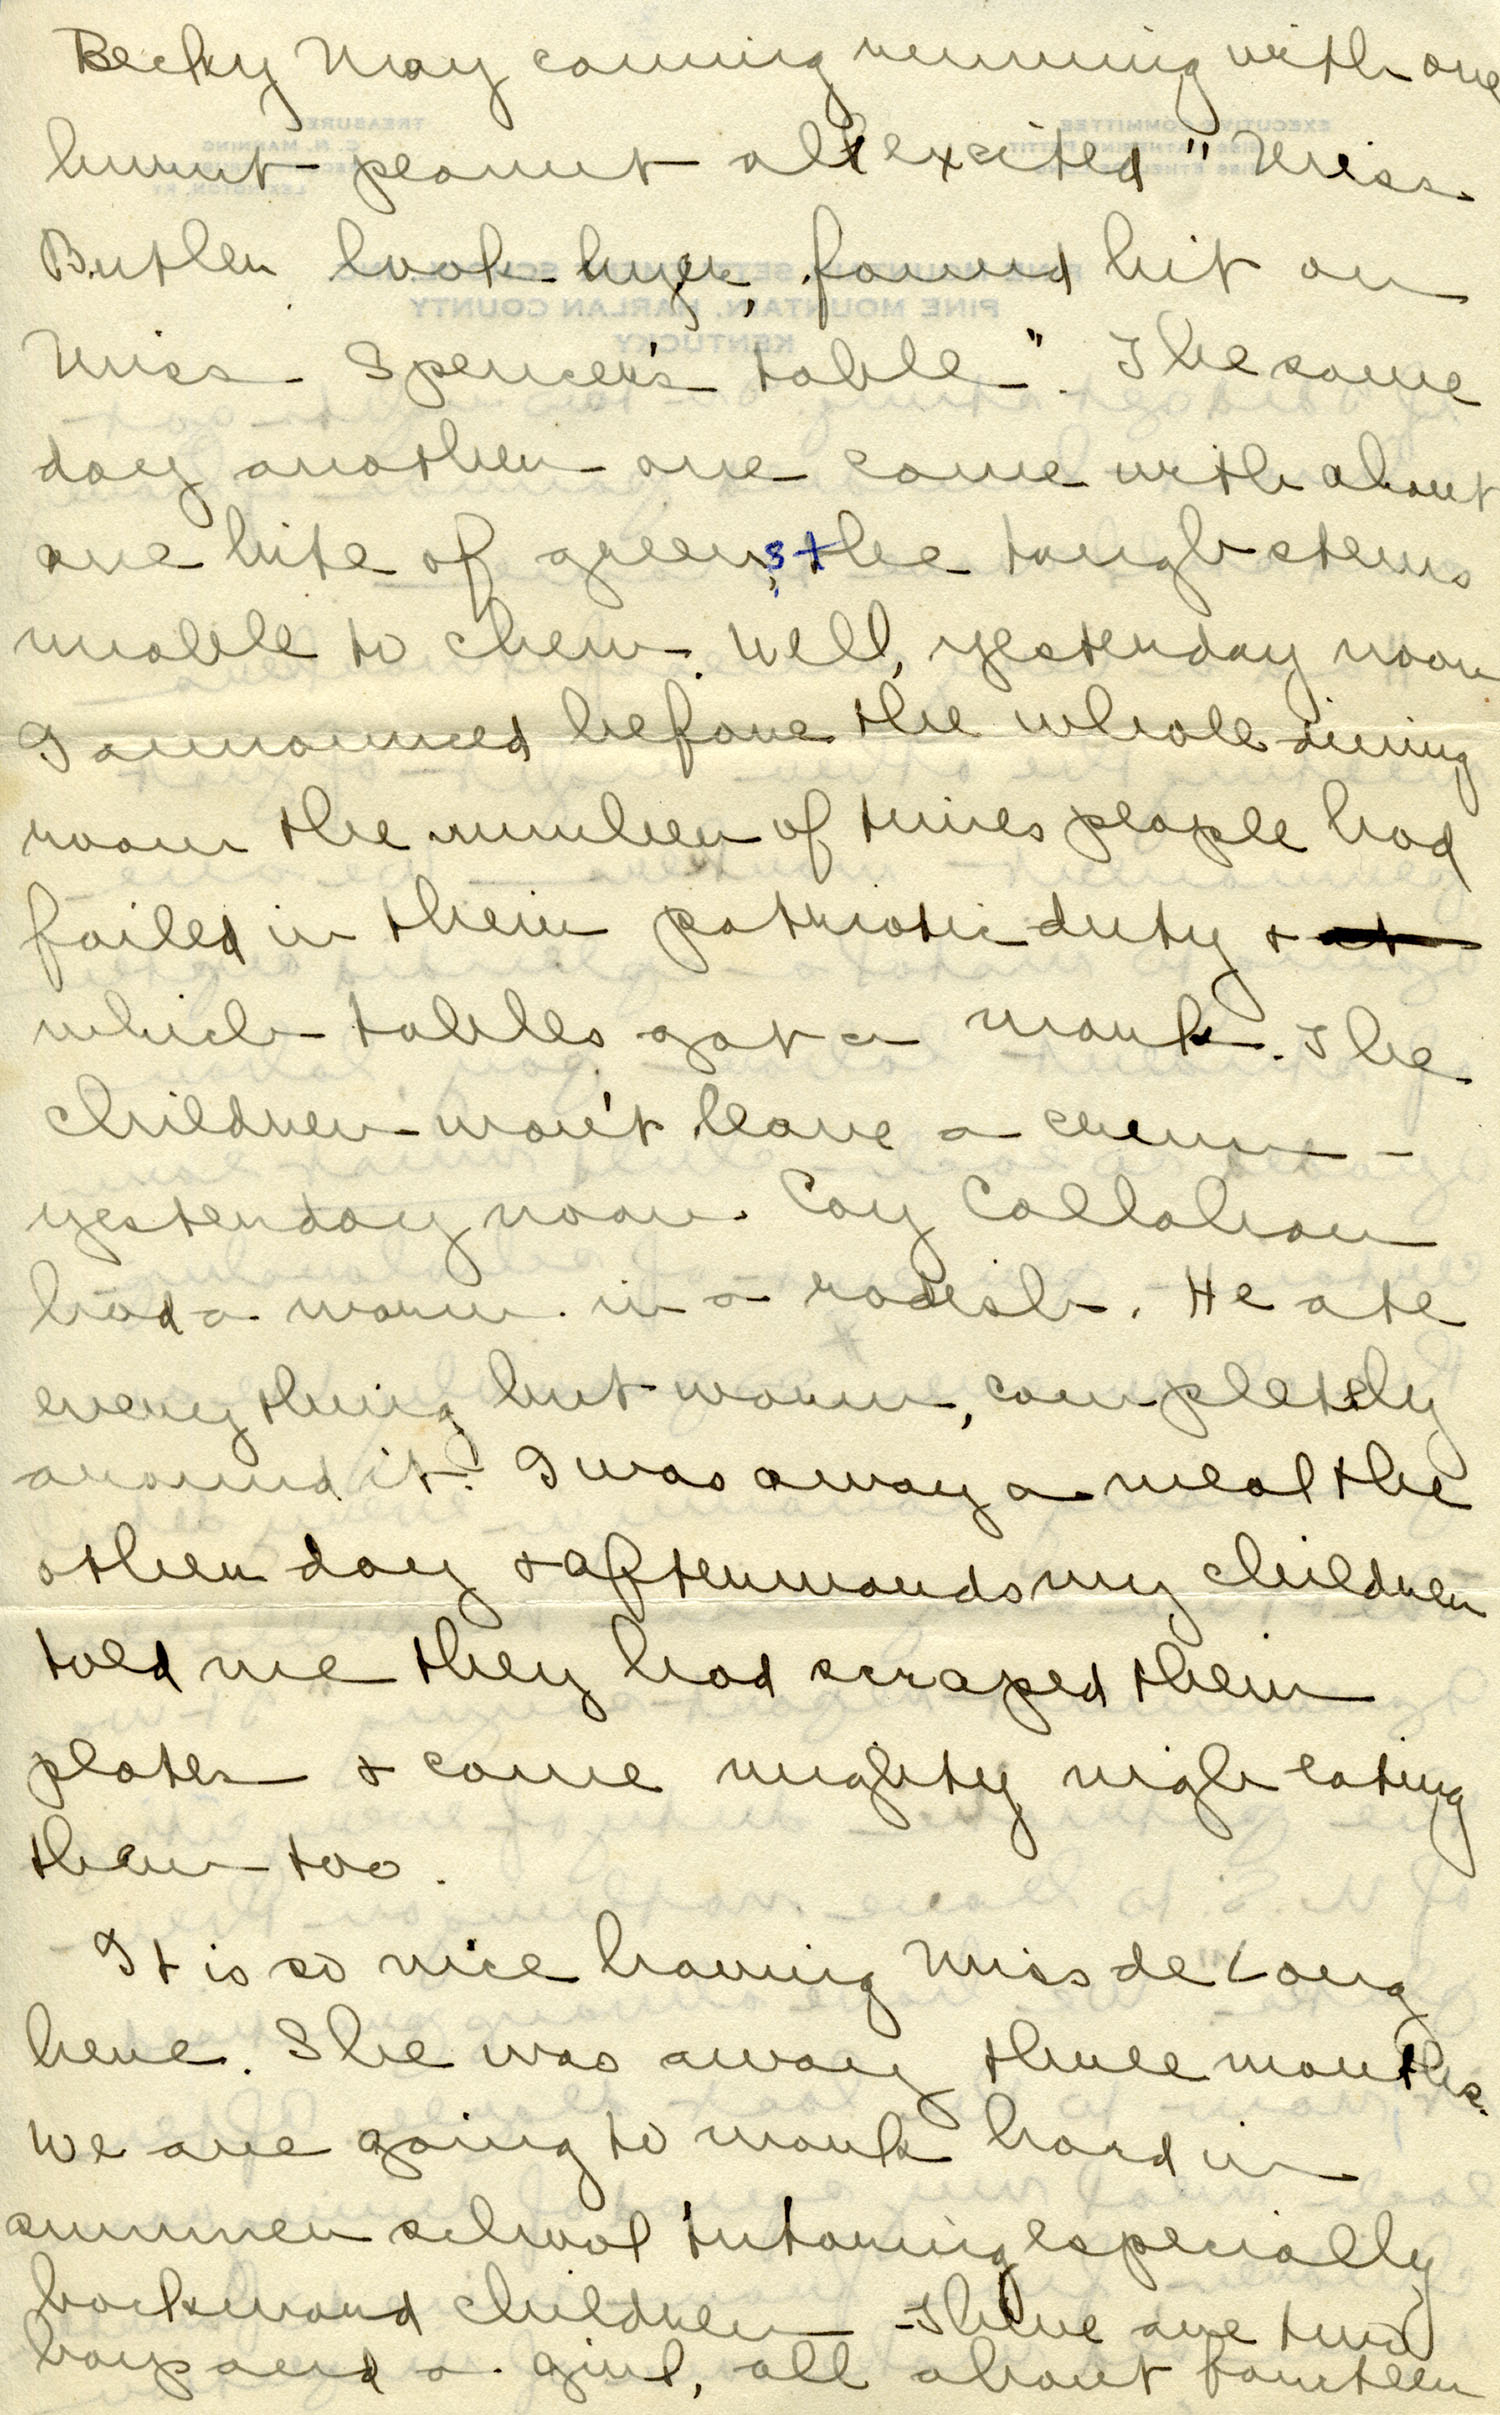 Becky May coming running with one
burnt peanut all excited "Miss
Butler look hyer, found hit on
Miss Spencer's table". The same
day another one came with about
one bite of greens, the tough stems
unable to chew. Well, yesterday noon
I announced before the whole dining
room the number of times people had
failed in their patriotic duty &
which tables got a mark. The
children won't leave a crumb -
yesterday noon. Coy Callahan
had a worm in a radish. He ate
everything but worm, completely
around it. I was away a meal the
other day & afterwards my children
told me they had scraped their
plates & come mighty nigh eating
them too.
It is so nice having Miss de Long
here. She was away three months.
We are going to work hard in
summer school tutoring especially
backward children - There are two
boys and a girl, all about fourteen